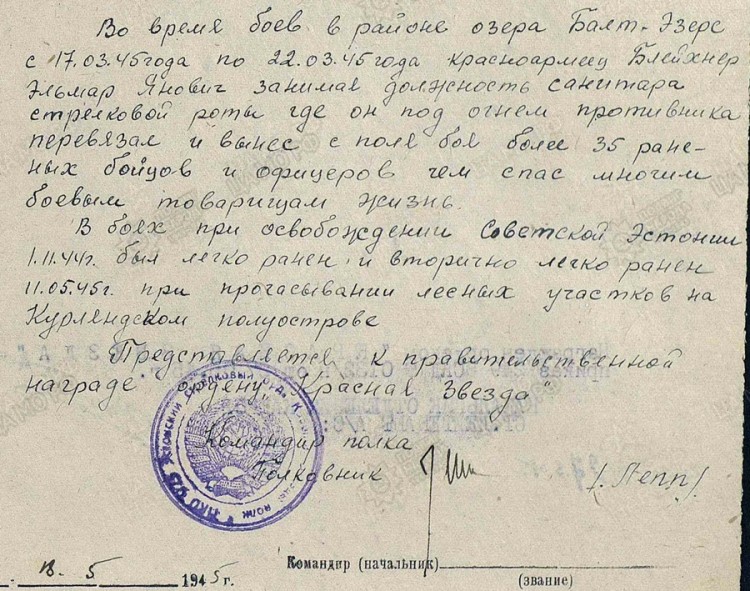 Во время боев в районе озера Балт-Эзерс
с 17.03.45года по 22.03.45года красноармеец Блейхнер
Эльмар Янович занимая должность санитара
стрелковой роты где он под огнем противника
перевязал и вынес с поля боя более 35 ране-
ных бойцов и офицеров чем спас многим
боевым товарищам жизнь.
В боях при освобождении Советской Эстонии
1.11.44г. был легко ранен и вторично легко ранен
11.05.45г. при прочасывании лесных участков на
Курляндском полуострове
Представляется к правительственной
награде ордену „Красная Звезда"
Командир полка
Полковник /Лепп/
Командир (начальник)
(звание)
18. 5 1945 г.